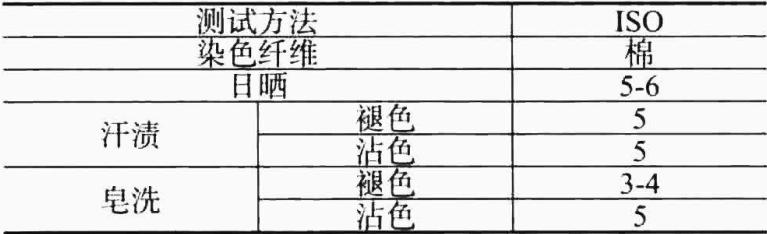 测试方法 ISO
染色纤维 棉
日晒 5-6
汗渍 褪色 5
沾色 5
皂洗 褪色 3-4
沾色 5